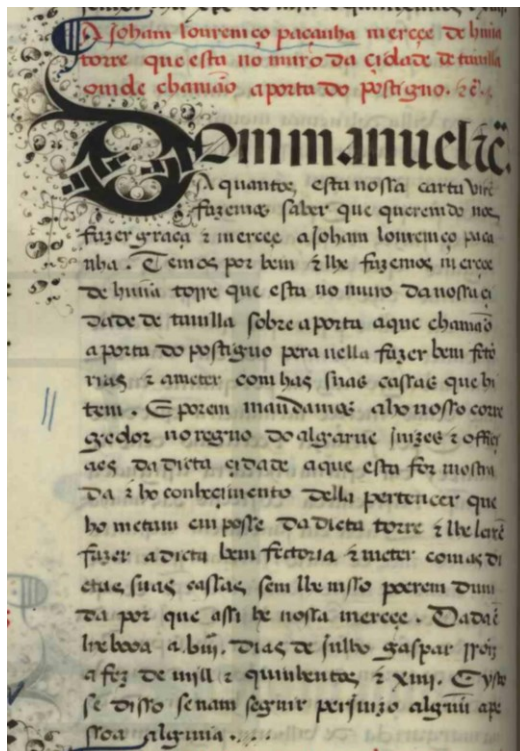 A Joham lourenço paçanha merçee de huũa
torre que esta no muro da çidade de tauilla
omde chamão a porta do postigno. ⁊c̃.
Dom manuel ⁊c̃.
A quantos esta nossa carta virẽ
fazemos saber que querendo nos
fazer graça ⁊ merçee a Joham lourenço paça
nha. Temos por bem ⁊ lhe fazemos merçee
de huũa torre que esta no muro da nossa çi
dade de tauilla sobre a porta a que chamão
a porta do postigno pera nella fazer bem feto
rias ⁊ a meter com has suas cassas que hi
tem. E porem mandamos ao nosso corre
gedor no regno do algarue juizes ⁊ offiçi
aes da dicta çidade a que esta for mostra
da ⁊ ho conheçimento della pertencer que
ho metam em posse da dicta torre ⁊ lhe leixẽ
fazer a dicta bem fectoria ⁊ meter com as di
ctas suas cassas sem lhe nisso poerem duui
da por que assi he nossa merçee. Dada ẽ
lixboa a .biij. dias de julho gaspar rroiz
a fez de mill ⁊ quinhentos ⁊ xiiij. E ysto
se disso senam seguir perjuizo alguũ a pe
ssoa alguma.